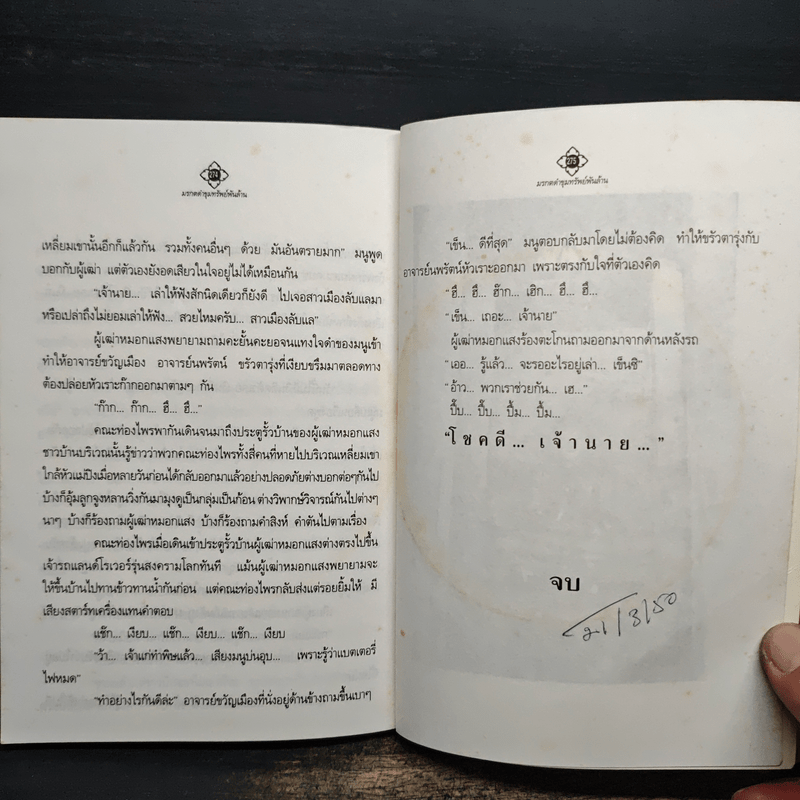 274
มรกตดำขุมทรัพย์พันล้าน
เหลี่ยมเขานั้นอีกก็แล้วกัน รวมทั้งคนอื่นๆ ด้วย มันอันตรายมาก” มนูพูด
บอกกับผู้เฒ่า แต่ตัวเองยังอดเสียวในใจอยู่ไม่ได้เหมือนกัน
“เจ้านาย... เล่าให้ฟังสักนิดเดียวก็ยังดี ไปเจอสาวเมืองลับแลมา
หรือเปล่าถึงไม่ยอมเล่าให้ฟัง... สวยไหมครับ... สาวเมืองลับแล”
ผู้เฒ่าหมอกแสงพยายามถามคะยั้นคะยอจนแทงใจดำของมนูเข้า
ทำให้อาจารย์ขวัญเมือง อาจารย์นพรัตน์ ขรัวตารุ่งที่เงียบขรึมมาตลอดทาง
ต้องปล่อยหัวเราะก๊ากออกมาตามๆ กัน
“ก๊าก... ก๊าก... ฮึ... ฮึ...”
คณะท่องไพรพากันเดินจนมาถึงประตูรั้วบ้านของผู้เฒ่าหมอกแสง
ชาวบ้านบริเวณนั้นรู้ข่าวว่าพวกคณะท่องไพรทั้งสี่คนที่หายไปบริเวณเหลี่ยมเขา
ใกล้หัวแม่ปิงเมื่อหลายวันก่อนได้กลับออกมาแล้วอย่างปลอดภัยต่างบอกต่อๆกันไป
บ้างก็อุ้มลูกจูงหลานวิ่งกันมามุงดูเป็นกลุ่มเป็นก้อน ต่างวิพากษ์วิจารณ์กันไปต่างๆ
นาๆ บ้างก็ร้องถามผู้เฒ่าหมอกแสง บ้างก็ร้องถามคำสิงห์ คำตันไปตามเรื่อง
คณะท่องไพรเมื่อเดินเข้าประตูรั้วบ้านผู้เฒ่าหมอกแสงต่างตรงไปขึ้น
เจ้ารถแลนด์โรเวอร์รุ่นสงครามโลกทันที แม้นผู้เฒ่าหมอกแสงพยายามจะ
ให้ขึ้นบ้านไปทานข้าวทานน้ำกันก่อน แต่คณะท่องไพรกลับส่งแต่รอยยิ้มให้ มี
เสียงสตาร์ทเครื่องแทนคำตอบ
แช๊ก... เงียบ... แช๊ก... เงียบ... แช๊ก... เงียบ
“ว้า... เจ้าแก่ทำพิษแล้ว... เสียงมนูบ่นอุบ... เพราะรู้ว่าแบตเตอรี่
ไฟหมด”
“ทำอย่างไรกันดีล่ะ” อาจารย์ขวัญเมืองที่นั่งอยู่ด้านข้างถามขึ้นเบาๆ
275
มรกตดำขุมทรัพย์พันล้าน
“เข็น... ดีที่สุด” มนูตอบกลับมาโดยไม่ต้องคิด ทำให้ขรัวตารุ่งกับ
อาจารย์นพรัตน์หัวเราะออกมา เพราะตรงกับใจที่ตัวเองคิด
“ฮึ... ฮึ... ฮ๊าก... เฮิก... ฮึ... ฮึ...
“เข็น... เถอะ... เจ้านาย”
ผู้เฒ่าหมอกแสงร้องตะโกนถามออกมาจากด้านหลังรถ
“เออ... รู้แล้ว... จะรออะไรอยู่เล่า... เข็นซิ”
“อ้าว... พวกเราช่วยกัน... เฮ...”
ปี๊บ... ปี๊บ... ปี๊ม... ปี๊ม...
“โชคดี... เจ้านาย...”
จบ
/3/50